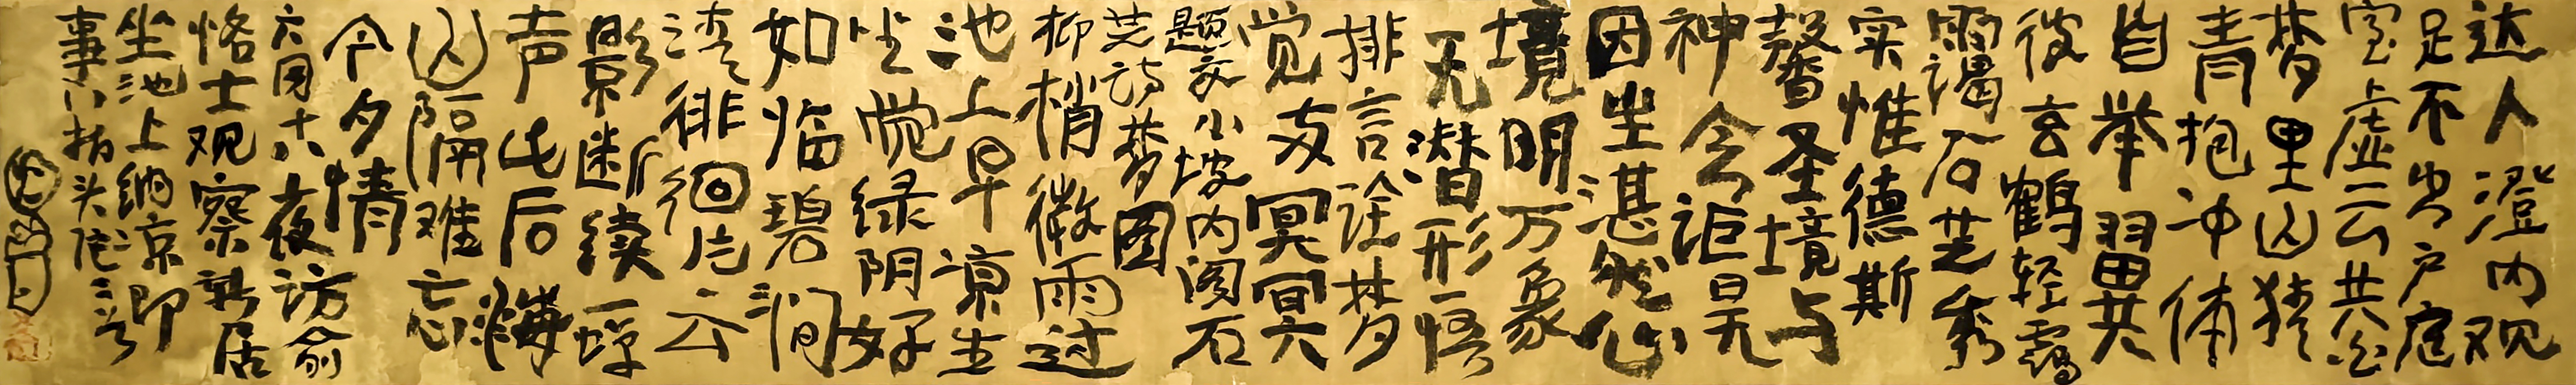 达人澄内观
足不出户庭
室虚云共白
梦里山犹
青抱冲体
自举翼
彼玄鹤轻
石芝秀
实惟德斯
馨圣境与
神会讵曰无
因生湛然心
境明万象
无潜形悟
排言诠梦
觉冥冥
题家小坡内阁石
芝诗梦图
柳梢微雨过
池上早凉生
坐觉绿阴好
如临碧涧
湾徘徊片云
影断续一蝉
声此后海
山隔难忘
今夕情
六月十六夜访俞
恪士观察新居
坐池上纳凉即
事八指头陀二首